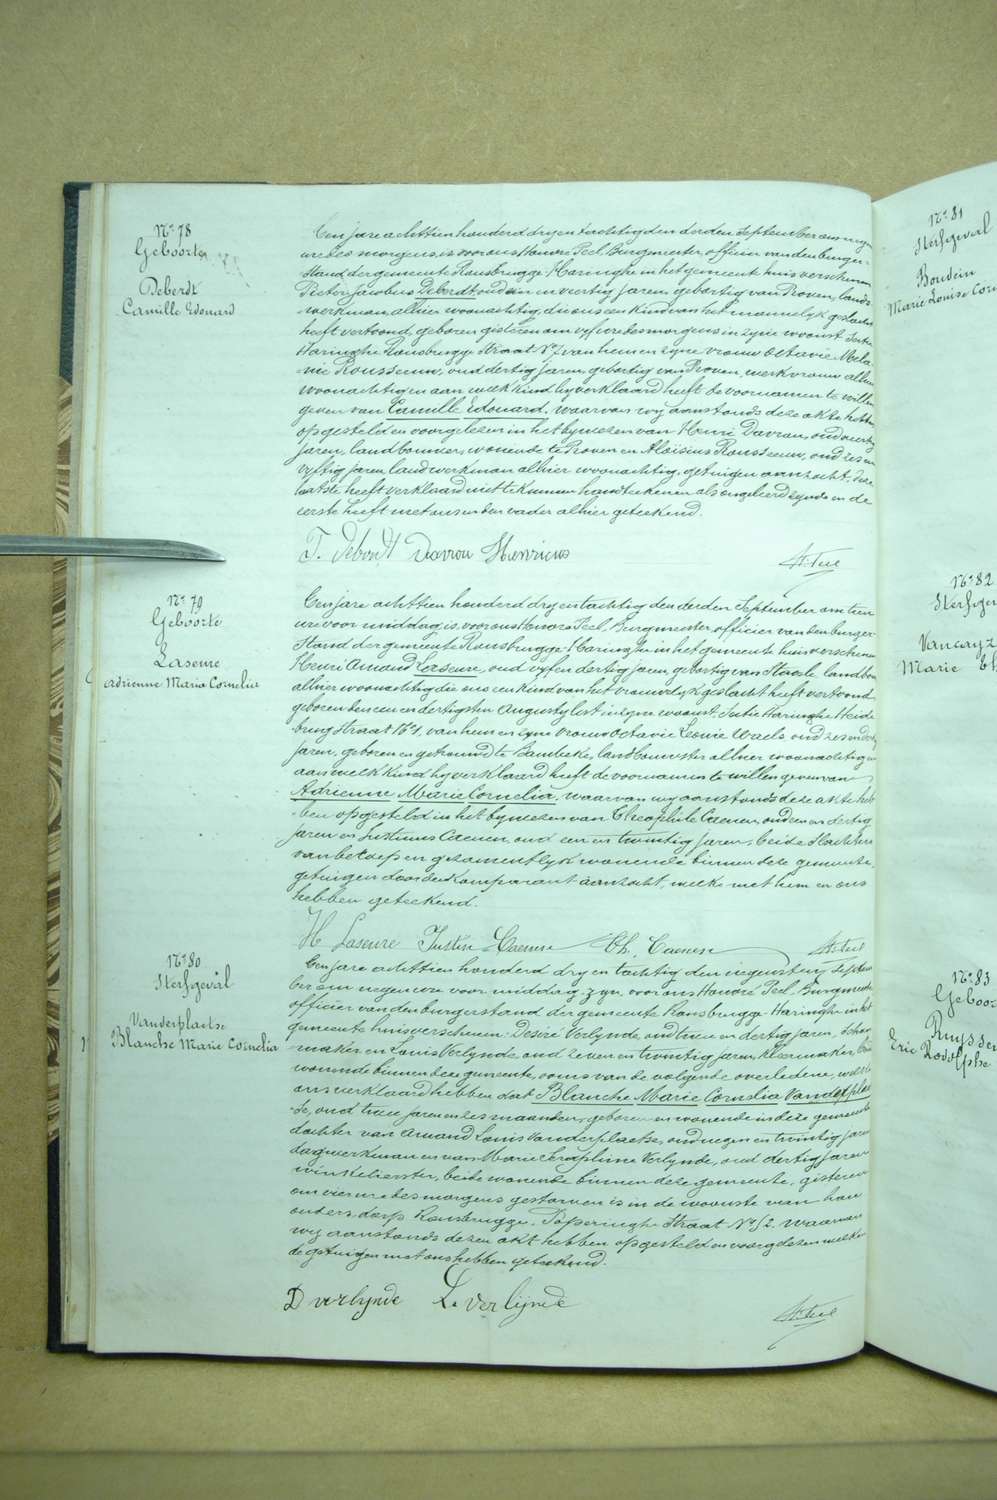 N° 78
Geboorte
Deberdt
Camille Edouard
Een jare achttien honderd dryentachtig den derden September om negen
ure des morgens, is voor ons Honoré Peel, Burgmeester, officier van den burger-
stand der gemeente Rousbrugge-Haringhe in het gemeentehuis verschenen
Pieter Jacobus Deberdt oud een en veertig jaren, geboortig van Proven, lands
werkman, alhier woonachtig, die ons een kind van het mannelyk geslacht
heeft vertoond, geboren gisteren om vyf ure des morgens in zyne woonst Sectie
Haringhe Rousbrugge straat N° 7 van hem en zyne vrouw Octavie Mela-
nie Rousseeuw, oud dertig jaren, geboortig van Proven, werkvrouw alhier
woonachtig en aan welk kind hy verklaard heeft de voornamen te willen
geven van Camille Edouard, waarvan wy aanstonds deze akte hebben
opgesteld en voorgelezen in het bywezen van Henri Davrou, oud veertig
jaren, landbouwer, wonende te Proven en Aloïsius Rousseeuw, oud zes en
vyftig jaren, landwerkman alhier woonachtig, getuigen aanzocht. Deze
laatste heeft verklaard niet te kunnen handteekenen als ongeleerd zynde en de
eerste heeft met ons en den vader alhier geteekend.
P. Deberdt Davrou Henricus H. Peel
N° 79
Geboorte
Laseure
Adrienne Marie Cornelia
Een jare achttien honderd dryentachtig den derden September om tien
ure voor middag, is voor ons Honoré Peel, Burgmeester, officier van den burger-
stand der gemeente Rousbrugge-Haringhe in het gemeentehuis verschenen
Henri Amand Laseure, oud vyf en dertig jaren, geboortig van Stavele landbouwer
alhier woonachtig die ons een kind van het vrouwelyk geslacht heeft vertoond
geboren den een en dertigsten Augusty lest in zyne woonst, Sectie Haringhe Heide
brug straat N° 1, van hem en zyne vrouw Octavie Leonie Waels oud zes en dertig
jaren, geboren en getrouwd te Bambeke, landbouwster alhier woonachtig en
aan welk kind hy verklaard heeft de voornamen te willen geven van
Adrienne Marie Cornelia, waarvan wy aanstonds deze akte heb-
ben opgesteld in het bywezen van Theophile Caenen, oud een en dertig
jaren en Justinus Caenen, oud een en twintig jaren, beide
van beroep en gezamentlyk wonende binnen deze gemeente,
getuigen door den komparant aanzocht, welke met hem en ons
hebben geteekend.
H Laseure Justin Caenen Th. Caenen H. Peel
N° 80
Sterfgeval
Vanderplaetse
Blanche Marie Cornelia
Een jare achttien honderd dry en tachtig den negensten Septem
ber om negen ure voor middag, zyn voor ons Honoré Peel, Burgmeester
officier van den burgerstand der gemeente Rousbrugge-Haringhe in het
gemeentehuis verschenen: Desiré Verlynde oud twee en dertig jaren, schoen
maker en Louis Verlynde, oud zeven en twintig jaren, kleermaker, beide
wonende binnen deze gemeente, ooms van de volgende overledene, welke
ons verklaard hebben dat Blanche Marie Cornelia Vanderplaet-
se, oud twee jaren en zes maanden, geboren en wonende in deze gemeente
dochter van Amand Louis Vanderplaetse, oud negen en twintig jaren
dagwerkman en van Marie Seraphine Verlynde, oud dertig jaren
winkelierster, beide wonende binnen deze gemeente, gisteren
om vier ure des morgens gestorven is in de woonste van hare
ouders dorp Rousbrugge, Poperinghe Straat N° 52. Waarvan
wy aanstonds dezen akt hebben opgesteld en voorgelezen welken
de getuigen met ons hebben geteekend.
D verlynde L. verlijnde H. Peel
N° 81
Sterfgeval
Boudein
Marie Louise Corn
N° 82
Sterfge
Vancayz
Marie
N° 83
Geboor
Ruyssen
Eric Rodolphe